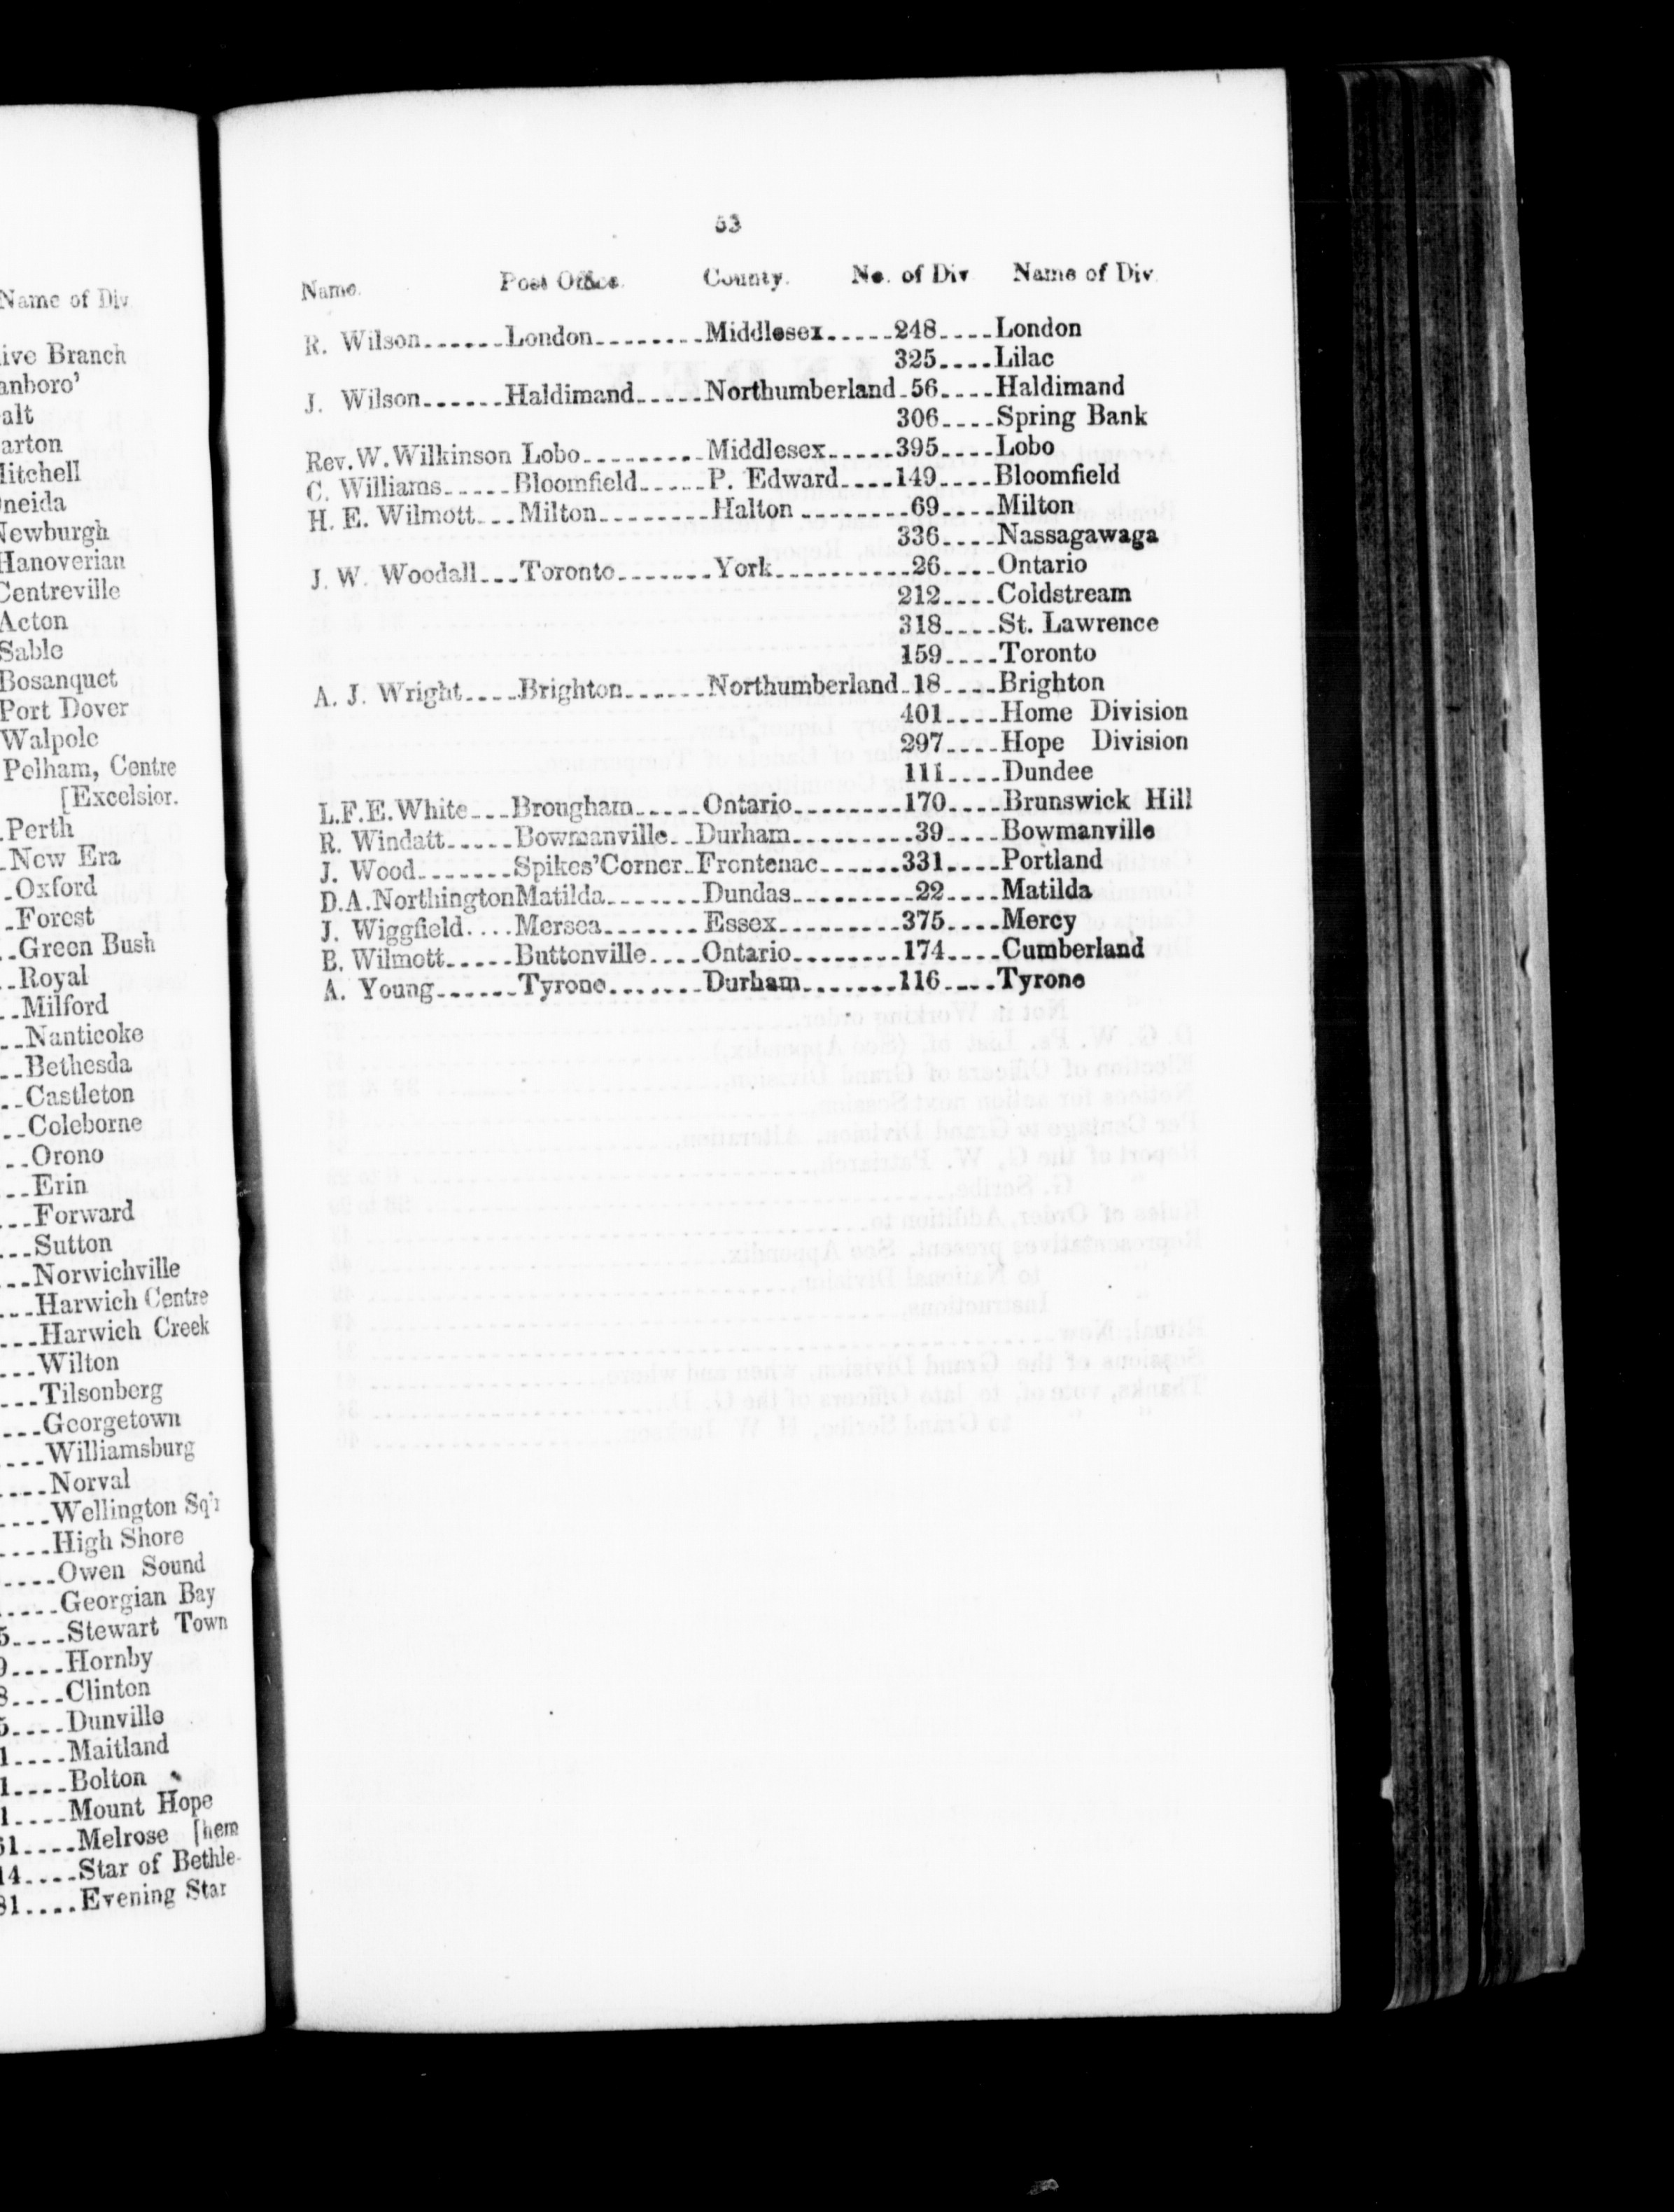 Name of Div
ive Branch
anboro'
alt
arton
Mitchell
Oneida
Newburgh
Hanoverian
Centreville
Acton
Sable
Bosanquet
Port Dover
Walpole
Pelham, Centre
[Excelsior.
.Perth
.New Era
.Oxford
.Forest
..Green Bush
..Royal
..Milford
..Nanticoke
..Bethesda
..Castleton
..Coleborne
...Orono
...Erin
...Forward
...Sutton
...Norwichville
...Harwich Centre
...Harwich Creek
...Wilton
...Tilsonberg
....Georgetown
....Williamsburg
....Norval
....Wellington Sq'r
....High Shore
....Owen Sound
....Georgian Bay
5....Stewart Town
9....Hornby
8....Clinton
5....Dunville
1....Maitland
1....Bolton
1....Mount Hope
61....Melrose [hem
14....Star of Bethle-
81....Evening Star
53
Name. Post Office. County. No. of Div Name of Div.
R. Wilson......London........Middlesex.....248....London
325....Lilac
J. Wilson......Haldimand.....Northumberland.56....Haldimand
306....Spring Bank
Rev.W.Wilkinson Lobo.........Middlesex.....395....Lobo
C. Williams.....Bloomfield.....P. Edward....149....Bloomfield
H. E. Wilmott...Milton.........Halton ........69....Milton
336....Nassagawaga
J. W. Woodall...Toronto.......York..........26....Ontario
212....Coldstream
318....St. Lawrence
159....Toronto
A. J. Wright....Brighton......Northumberland.18....Brighton
401....Home Division
297....Hope Division
111....Dundee
L.F.E.White...Brougham.....Ontario.........170....Brunswick Hill
R. Windatt.....Bowmanville..Durham.........39.....Bowmanville
J. Wood.......Spikes'Corner.Frontenac......331.....Portland
D.A.NorthingtonMatilda.......Dundas.........22.....Matilda
J. Wiggfield....Mersea.......Essex.........375....Mercy
B. Wilmott.....Buttonville....Ontario........174....Cumberland
A. Young......Tyrone.......Durham.......116....Tyrone